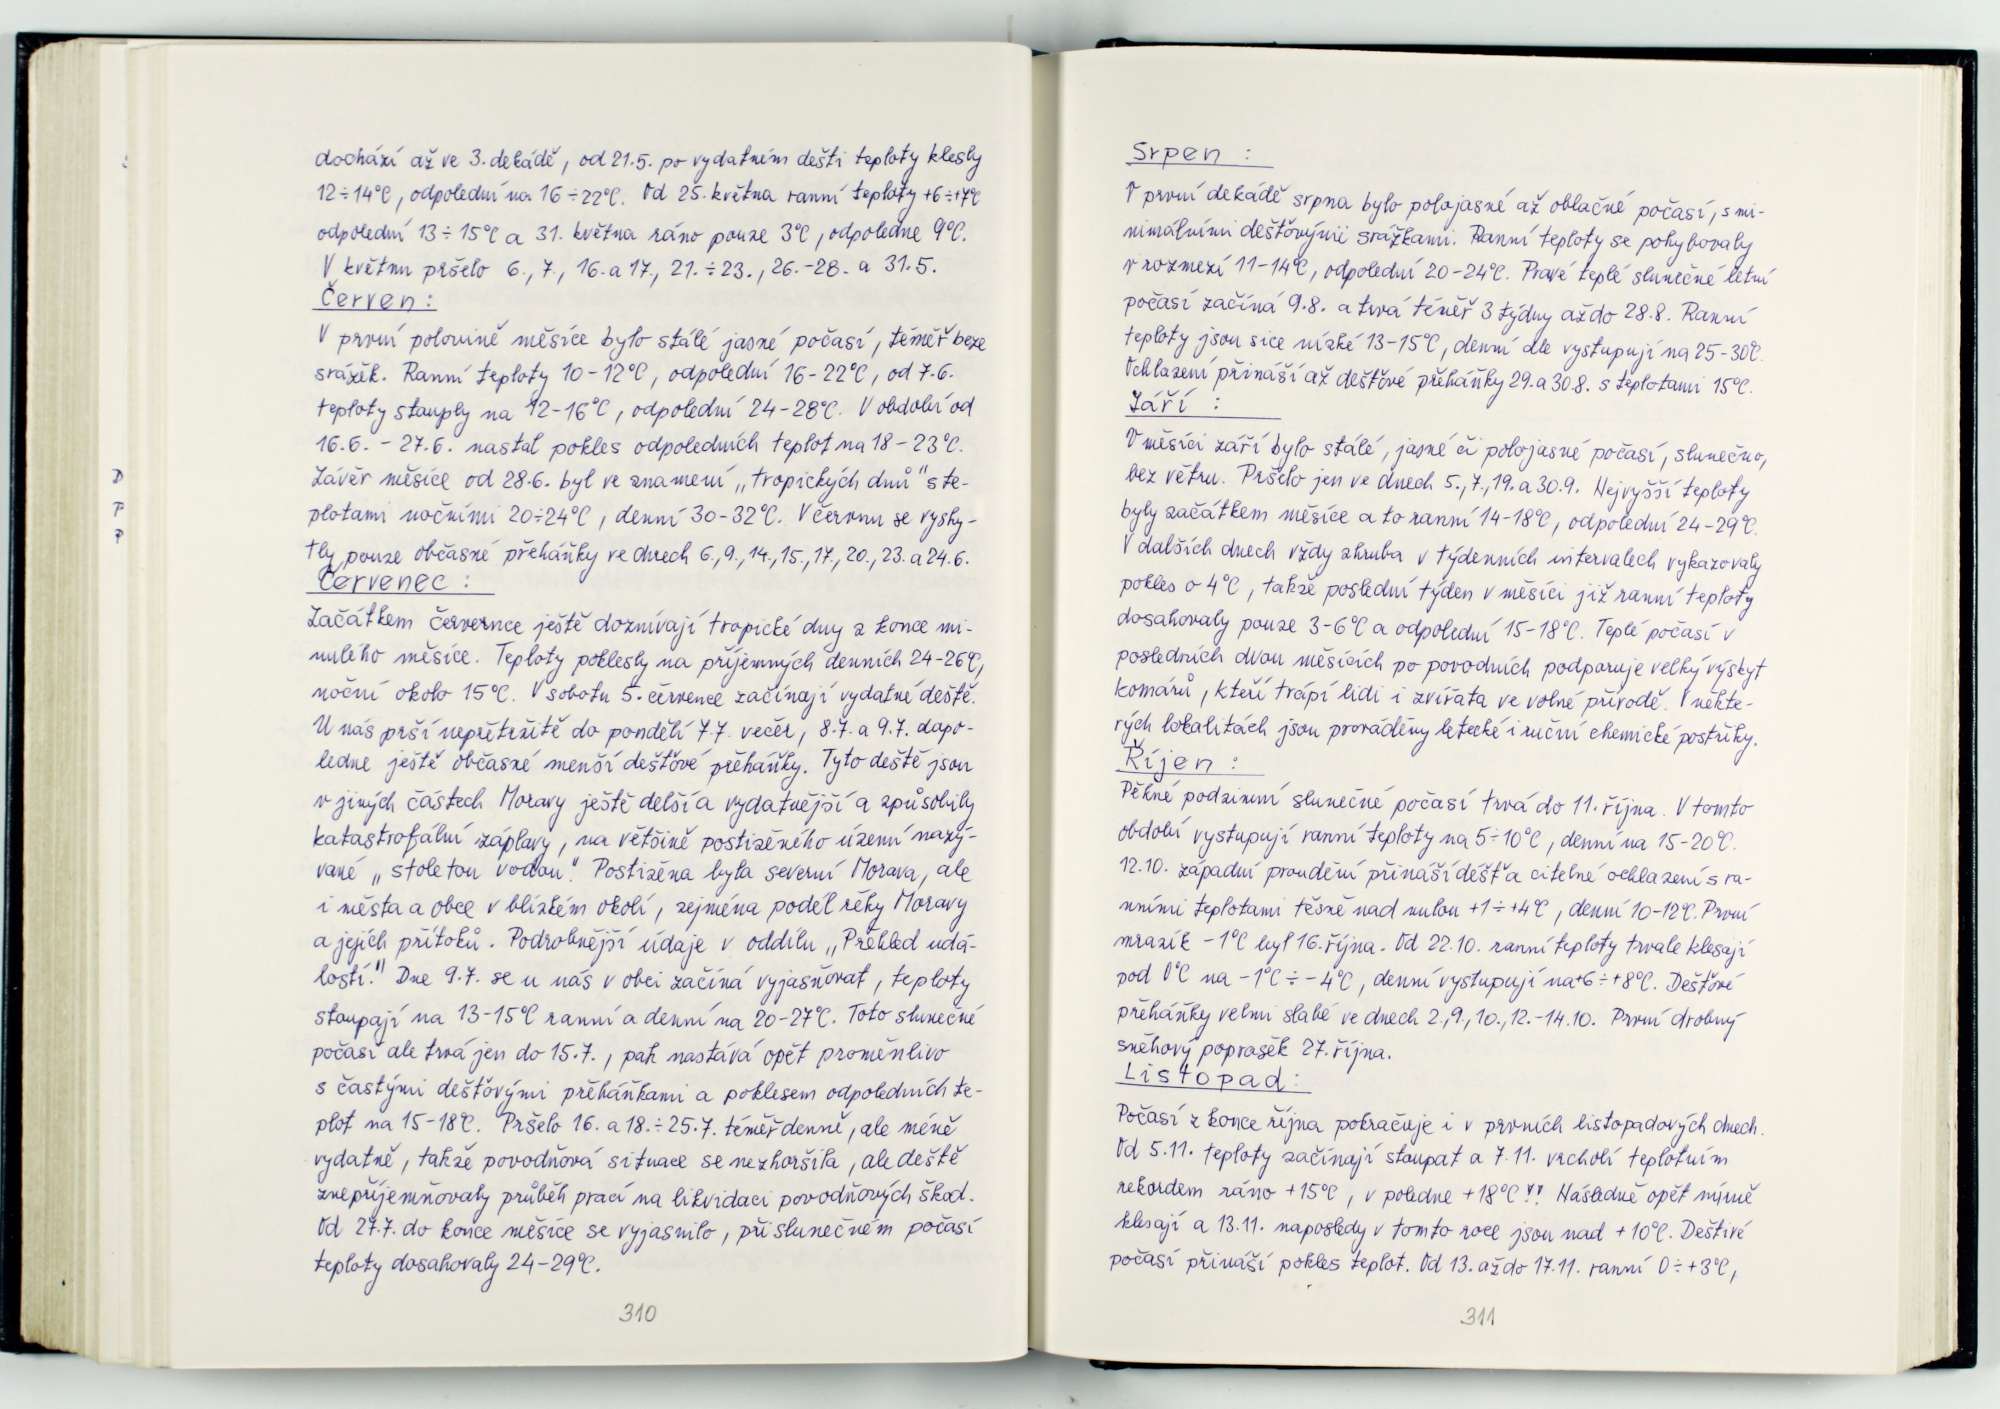 dochází až ve 3. dekádě, od 21.5. po vydatném dešti teploty klesly
12÷14°C, odpolední na 16÷22°C. Od 25. května ranní teploty +6÷+7°C
odpolední 13÷15°C a 31. května ráno pouze 3°C, odpoledne 9°C.
V květnu pršelo 6., 7., 16. a 17., 21.÷23., 26.-28. a 31.5.
Červen:
V první polovině měsíce bylo stálé jasné počasí, téměř beze
srážek. Ranní teploty 10-12°C, odpolední 16-22°C, od 7.6.
teploty stouply na 12-16°C, odpolední 24-28°C. V období od
16.6. - 27.6. nastal pokles odpoledních teplot na 18-23°C.
Závěr měsíce od 28.6. byl ve znamení „tropických dnů" s te-
plotami nočními 20÷24°C, denní 30-32°C. V červnu se vysky-
tly pouze občasné přeháňky ve dnech 6., 9., 14., 15., 17., 20., 23. a 24.6.
Červenec:
Začátkem července ještě doznívají tropické dny z konce mi-
nulého měsíce. Teploty poklesly na příjemných denních 24-26°C,
noční okolo 15°C. V sobotu 5. července začínají vydatné deště.
U nás prší nepřetržitě do pondělí 7.7. večer, 8.7. a 9.7. dopo-
ledne ještě občasné menší dešťové přeháňky. Tyto deště jsou
v jiných částech Moravy ještě delší a vydatnější a způsobily
katastrofální záplavy, na většině postiženého území nazý-
vané „stoletou vodou". Postižena byla severní Morava, ale
i města a obce v blízkém okolí, zejména podél řeky Moravy
a jejích přítoků. Podrobnější údaje v oddílu „Přehled udá-
lostí." Dne 9.7. se u nás v obci začíná vyjasňovat, teploty
stoupají na 13-15°C ranní a denní na 20-27°C. Toto slunečné
počasí ale trvá jen do 15.7., pak nastává opět proměnlivo
s častými dešťovými přeháňkami a poklesem odpoledních te-
plot na 15-18°C. Pršelo 16. a 18.÷25.7. téměř denně, ale méně
vydatně, takže povodňová situace se nezhoršila, ale deště
znepříjemňovaly průběh prací na likvidaci povodňových škod.
Od 27.7. do konce měsíce se vyjasnilo, při slunečném počasí
teploty dosahovaly 24-29°C.
310
Srpen :
V první dekádě srpna bylo polojasné až oblačné počasí, s mi-
nimálními dešťovými srážkami. Ranní teploty se pohybovaly
v rozmezí 11-14°C, odpolední 20-24°C. Pravé teplé slunečné letní
počasí začíná 9.8. a trvá téměř 3 týdny až do 28.8. Ranní
teploty jsou sice nízké 13-15°C, denní ale vystupují na 25-30°C.
Ochlazení přináší až dešťové přeháňky 29. a 30.8. s teplotami 15°C.
Září :
V měsíci září bylo stálé, jasné či polojasné počasí, slunečno,
bez větru. Pršelo jen ve dnech 5., 7., 19. a 30.9. Nejvyšší teploty
byly začátkem měsíce a to ranní 14-18°C, odpolední 24-29°C.
V dalších dnech vždy zhruba v týdenních intervalech vykazovaly
pokles o 4°C, takže poslední týden v měsíci již ranní teploty
dosahovaly pouze 3-6°C a odpolední 15-18°C. Teplé počasí v
posledních dvou měsících po povodních podporuje velký výskyt
komárů, kteří trápí lidi i zvířata ve volné přírodě. V někte-
rých lokalitách jsou prováděny letecké i ruční chemické postřiky.
Říjen :
Pěkné podzimní slunečné počasí trvá do 11. října. V tomto
období vystupují ranní teploty na 5÷10°C, denní na 15-20°C.
12.10. západní proudění přináší déšť a citelné ochlazení s ra-
nními teplotami těsně nad nulou +1÷+4°C, denní 10-12°C. První
mrazík -1°C byl 16. října. Od 22.10. ranní teploty trvale klesají
pod 0°C na -1°C÷-4°C, denní vystupují na +6÷+8°C. Dešťové
přeháňky velmi slabé ve dnech 2., 9., 10., 12.-14.10. První drobný
sněhový poprašek 27. října.
Listopad:
Počasí z konce října pokračuje i v prvních listopadových dnech.
Od 5.11. teploty začínají stoupat a 7.11. vrcholí teplotním
rekordem ráno +15°C, v poledne +18°C!! Následně opět mírně
klesají a 13.11. naposledy v tomto roce jsou nad +10°C. Deštivé
počasí přináší pokles teplot. Od 13. až do 17.11. ranní 0÷+3°C,
311